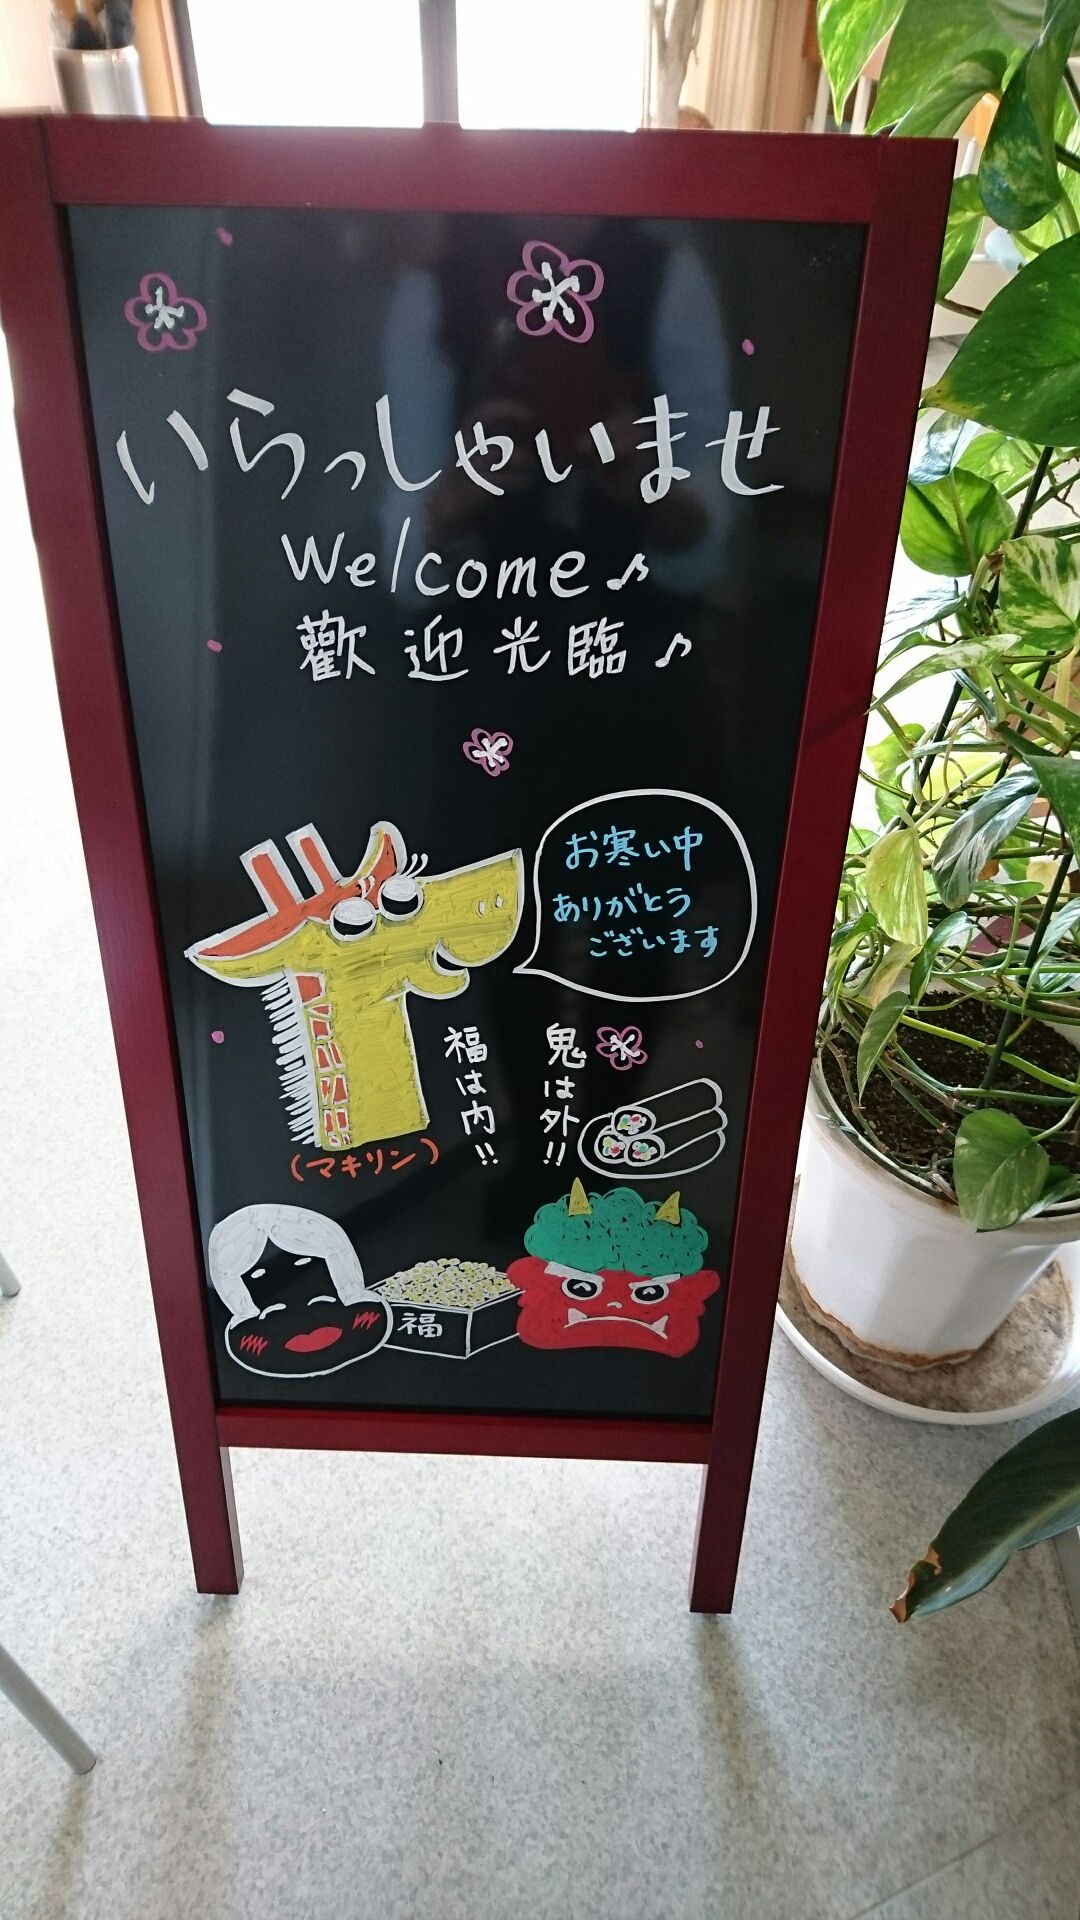 いらっしゃいませ
Welcome♪
歡迎光臨♪
お寒い中
ありがとう
ございます
鬼は外!!
福は内!!
(マキリン)
福